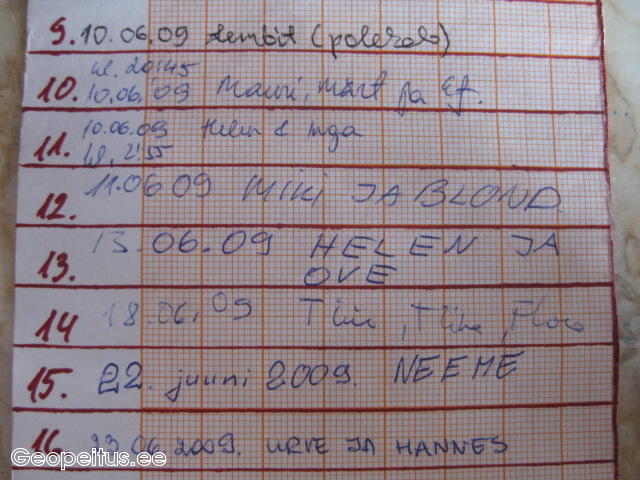 9. 10.06.09 Lembit (polezals)
kl. 20:45
10. 10.06.09 Mauri, Märt ja Ef.
10.06.09 Helen & Inga
11. kl. 21:55
12. 11.06 09 MIKI JA BLOND
13. 13.06.09 HELEN JA
OVE
14 18.06.09 Tiiu, Tiina, Flora
15. 22. juuni 2009. NEEME
16 23 06 2009. URVE JA HANNES
Geopeitus.ee